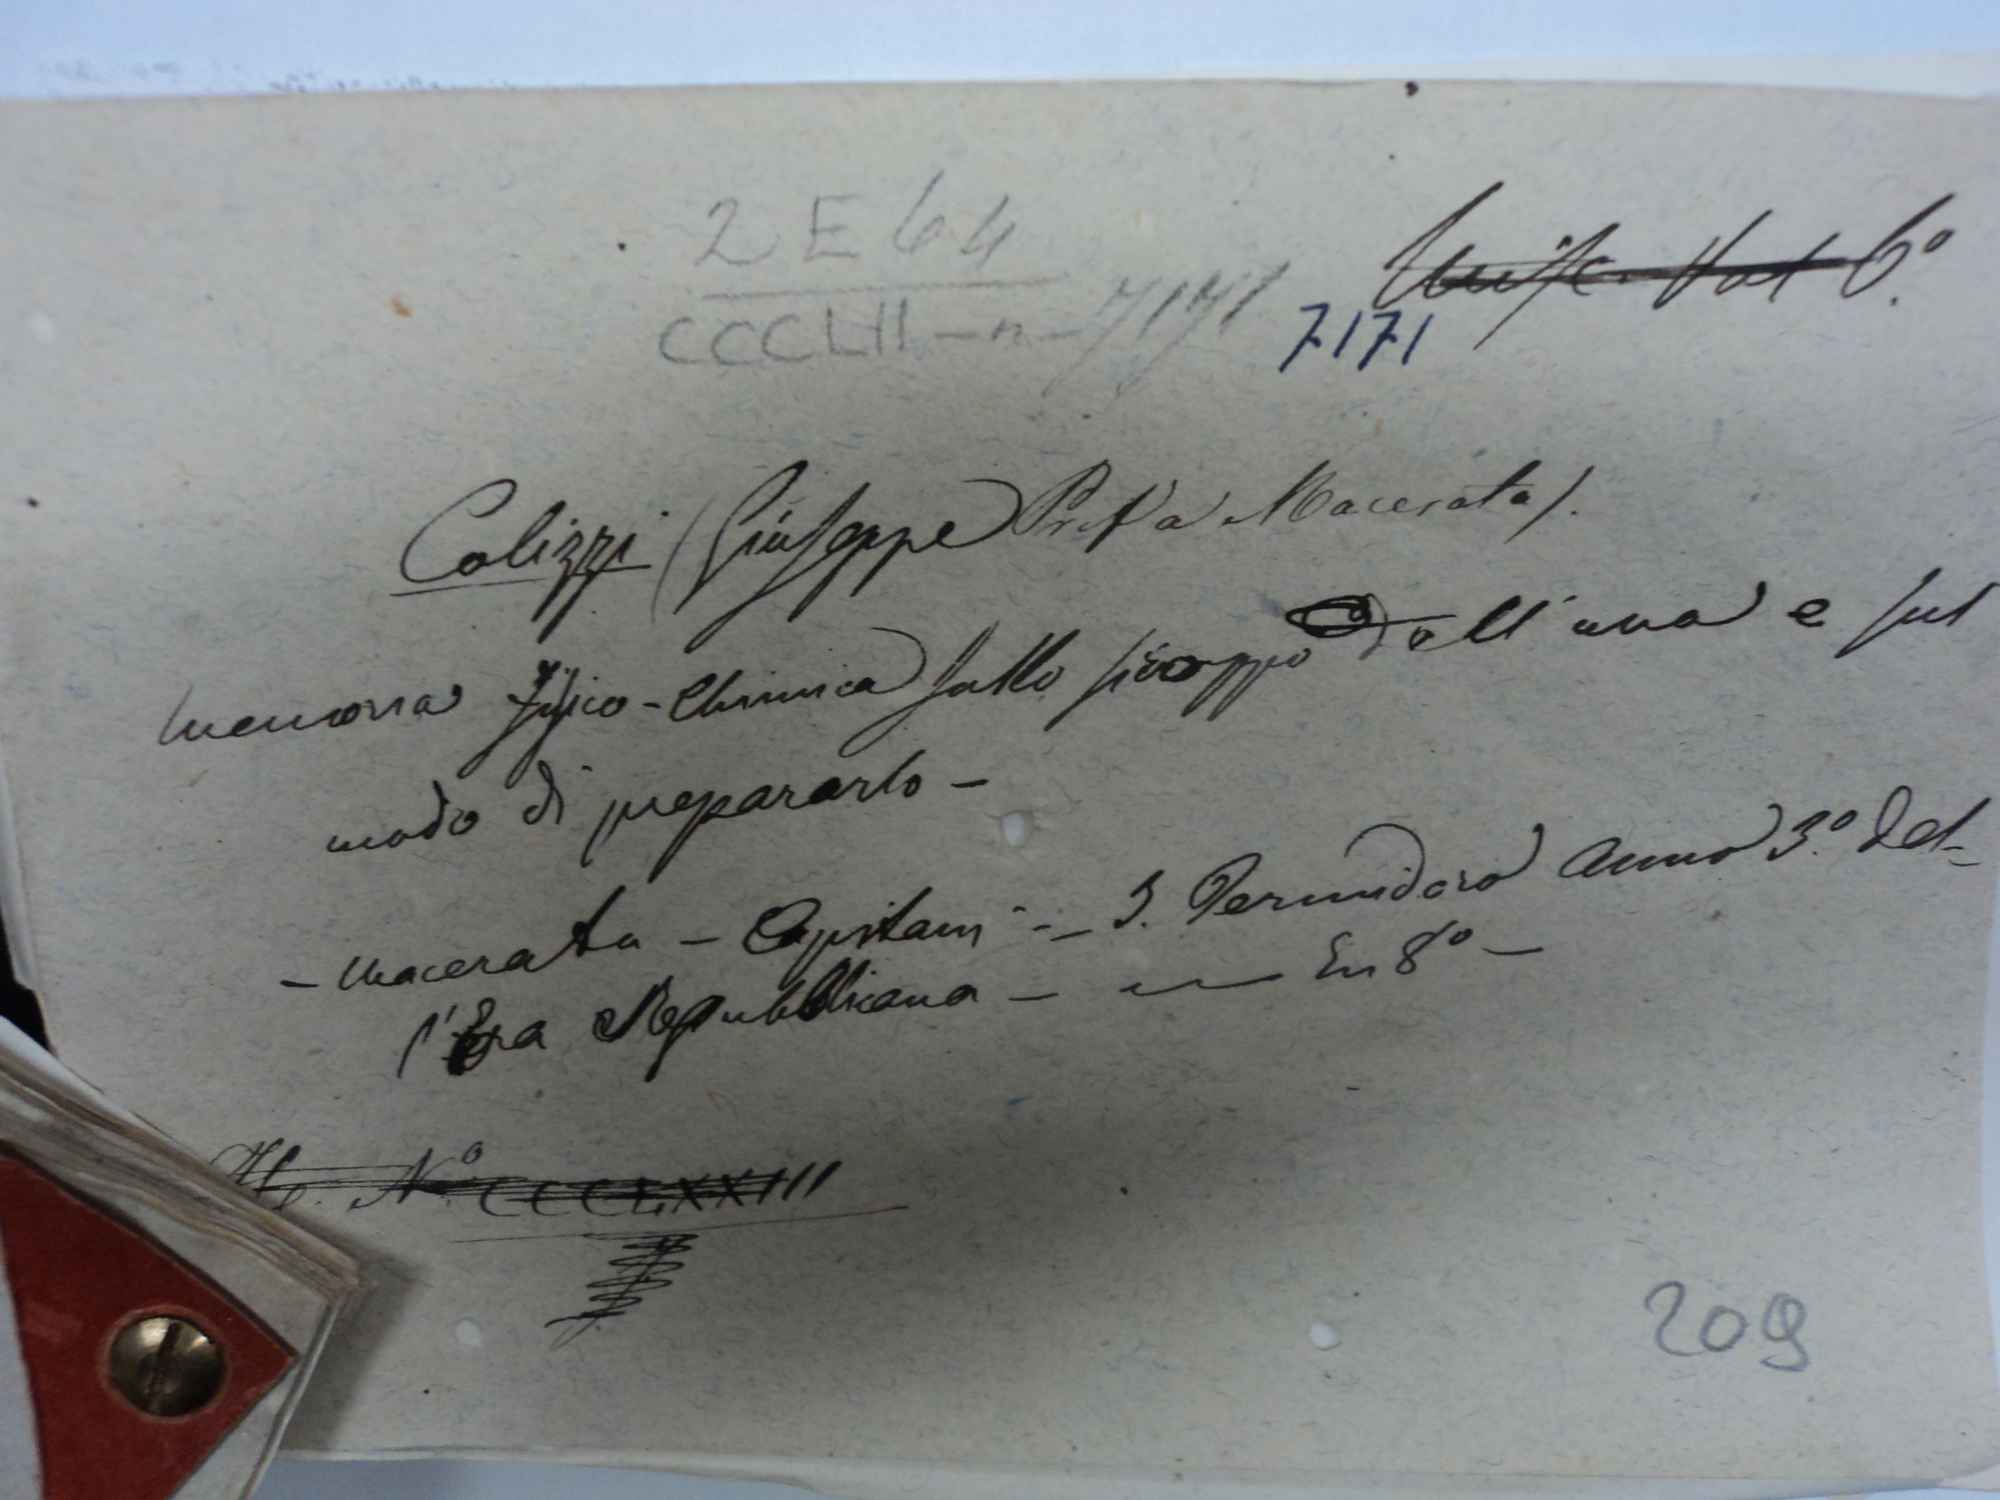 2 E 64
CCCLII - n - 7171
Misc. Vol 6º.
7171
Colizzi (Giuseppe Prof. a Macerata).
Memoria Fisico-Chimica sullo siroppo dell'uva e sul
modo di prepararlo -
- Macerata - Capitani - 3. Termidoro anno 3.º del-
l'Era Repubblicana - In 8º -
Nº. CCCLXXIII
209